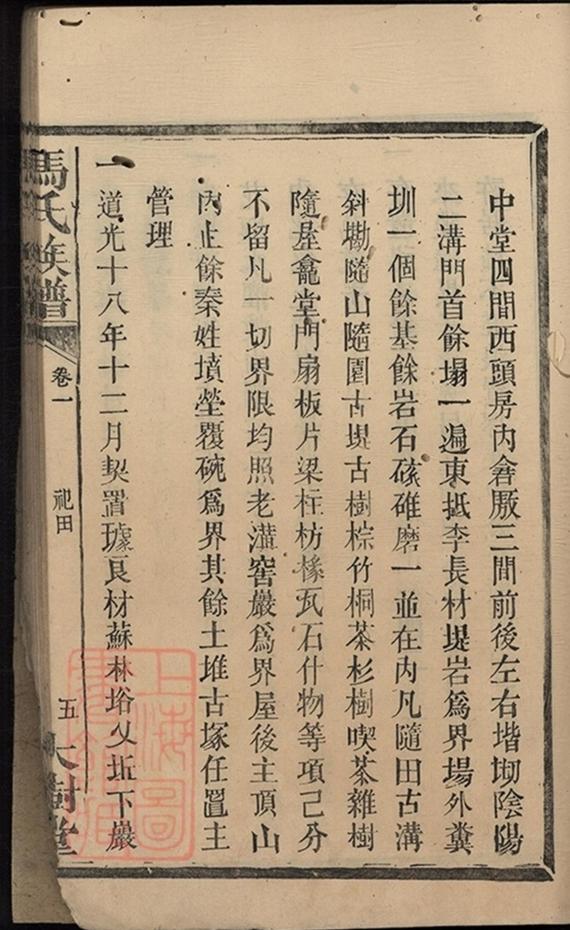 中堂四間西頭房內倉厫三間前後左右堦墈陰陽
二溝門首餘塌一遍東抵李長材堤岩爲界塲外糞
圳一個餘基餘岩石磙碓磨一並在內凡隨田古溝
斜墈隨山隨園古堤古樹棕竹桐茶杉樹喫茶雜樹
隨屋龕堂門扇板片梁柱枋椽瓦石什物等項己分
不留凡一切界限均照老灌窖嚴爲界屋後主頂山
內止餘秦姓墳塋覆碗爲界其餘土堆古塚任置主
管理
一道光十八年十二月契置璩良材蘇林峪父坵下嚴
馬氏族譜
卷一
祀田
五
大樹堂
上海圖